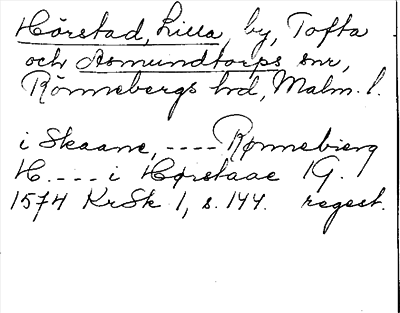 Hörstad, Lilla, by, Tofta
och Asmundtorps snr,
Rönnebergs hd, Malm. l.
i Skaane, ---- Rønnebierg
H. --- i Hørstaae 1G.
1574 KrSk 1, s. 144. regest.